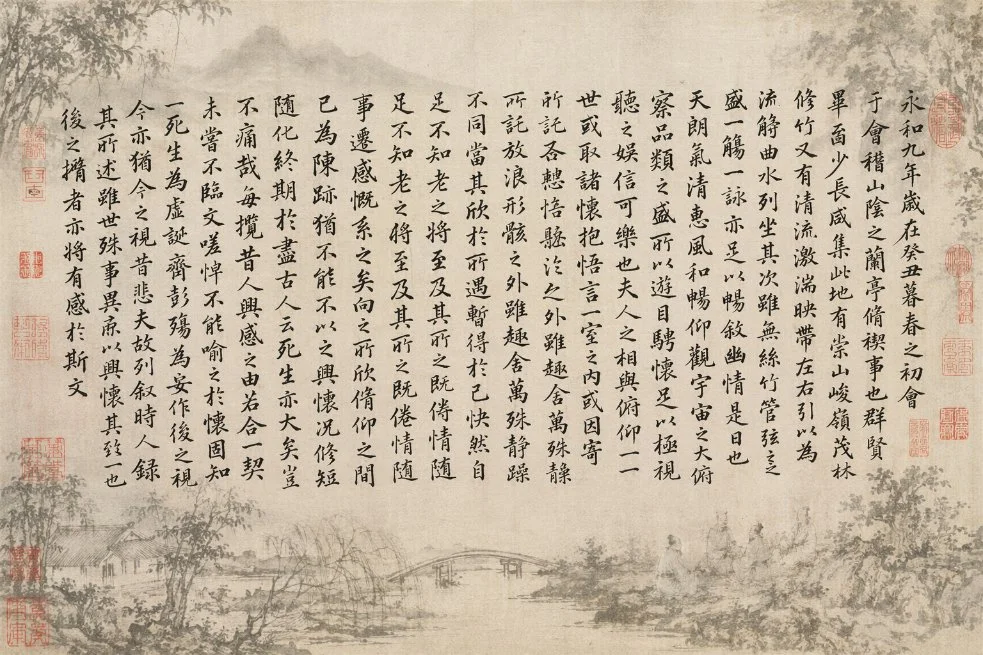 永和九年歲在癸丑暮春之初會
于會稽山陰之蘭亭脩禊事也群賢
畢面少長咸集此地有崇山峻嶺茂林
修竹又有清流激湍映帶左右引以為
流觴曲水列坐其次雖無絲竹管弦之
盛一觴一詠亦足以暢敘幽情是日也
天朗氣清惠風和暢仰觀宇宙之大俯
察品類之盛所以遊目騁懷足以極視
聽之娛信可樂也夫人之相與俯仰一一
世或取諸懷抱悟言一室之內或因寄
所託悟之外雖趣舍萬殊
所託放浪形骸之外雖趣舍萬殊静躁
不同當其欣於所遇暫得於己快然自
足不知老之將至及其所之既倦情隨
足不知老之將至及其所之既倦情隨
事遷感慨系之矣向之所欣脩仰之間
已為陳跡猶不能不以之興懷况修短
隨化終期於盡古人云死生亦大矣豈
不痛哉每攬昔人興感之由若合一契
未嘗不臨文嗟悼不能喻之於懷固知
一死生為虛誕齊彭殤為妄作後之視
今亦猶今之視昔悲夫故列叙時人録
其所述雖世殊事異以興懷其一也
後之攬者亦將有感於斯文